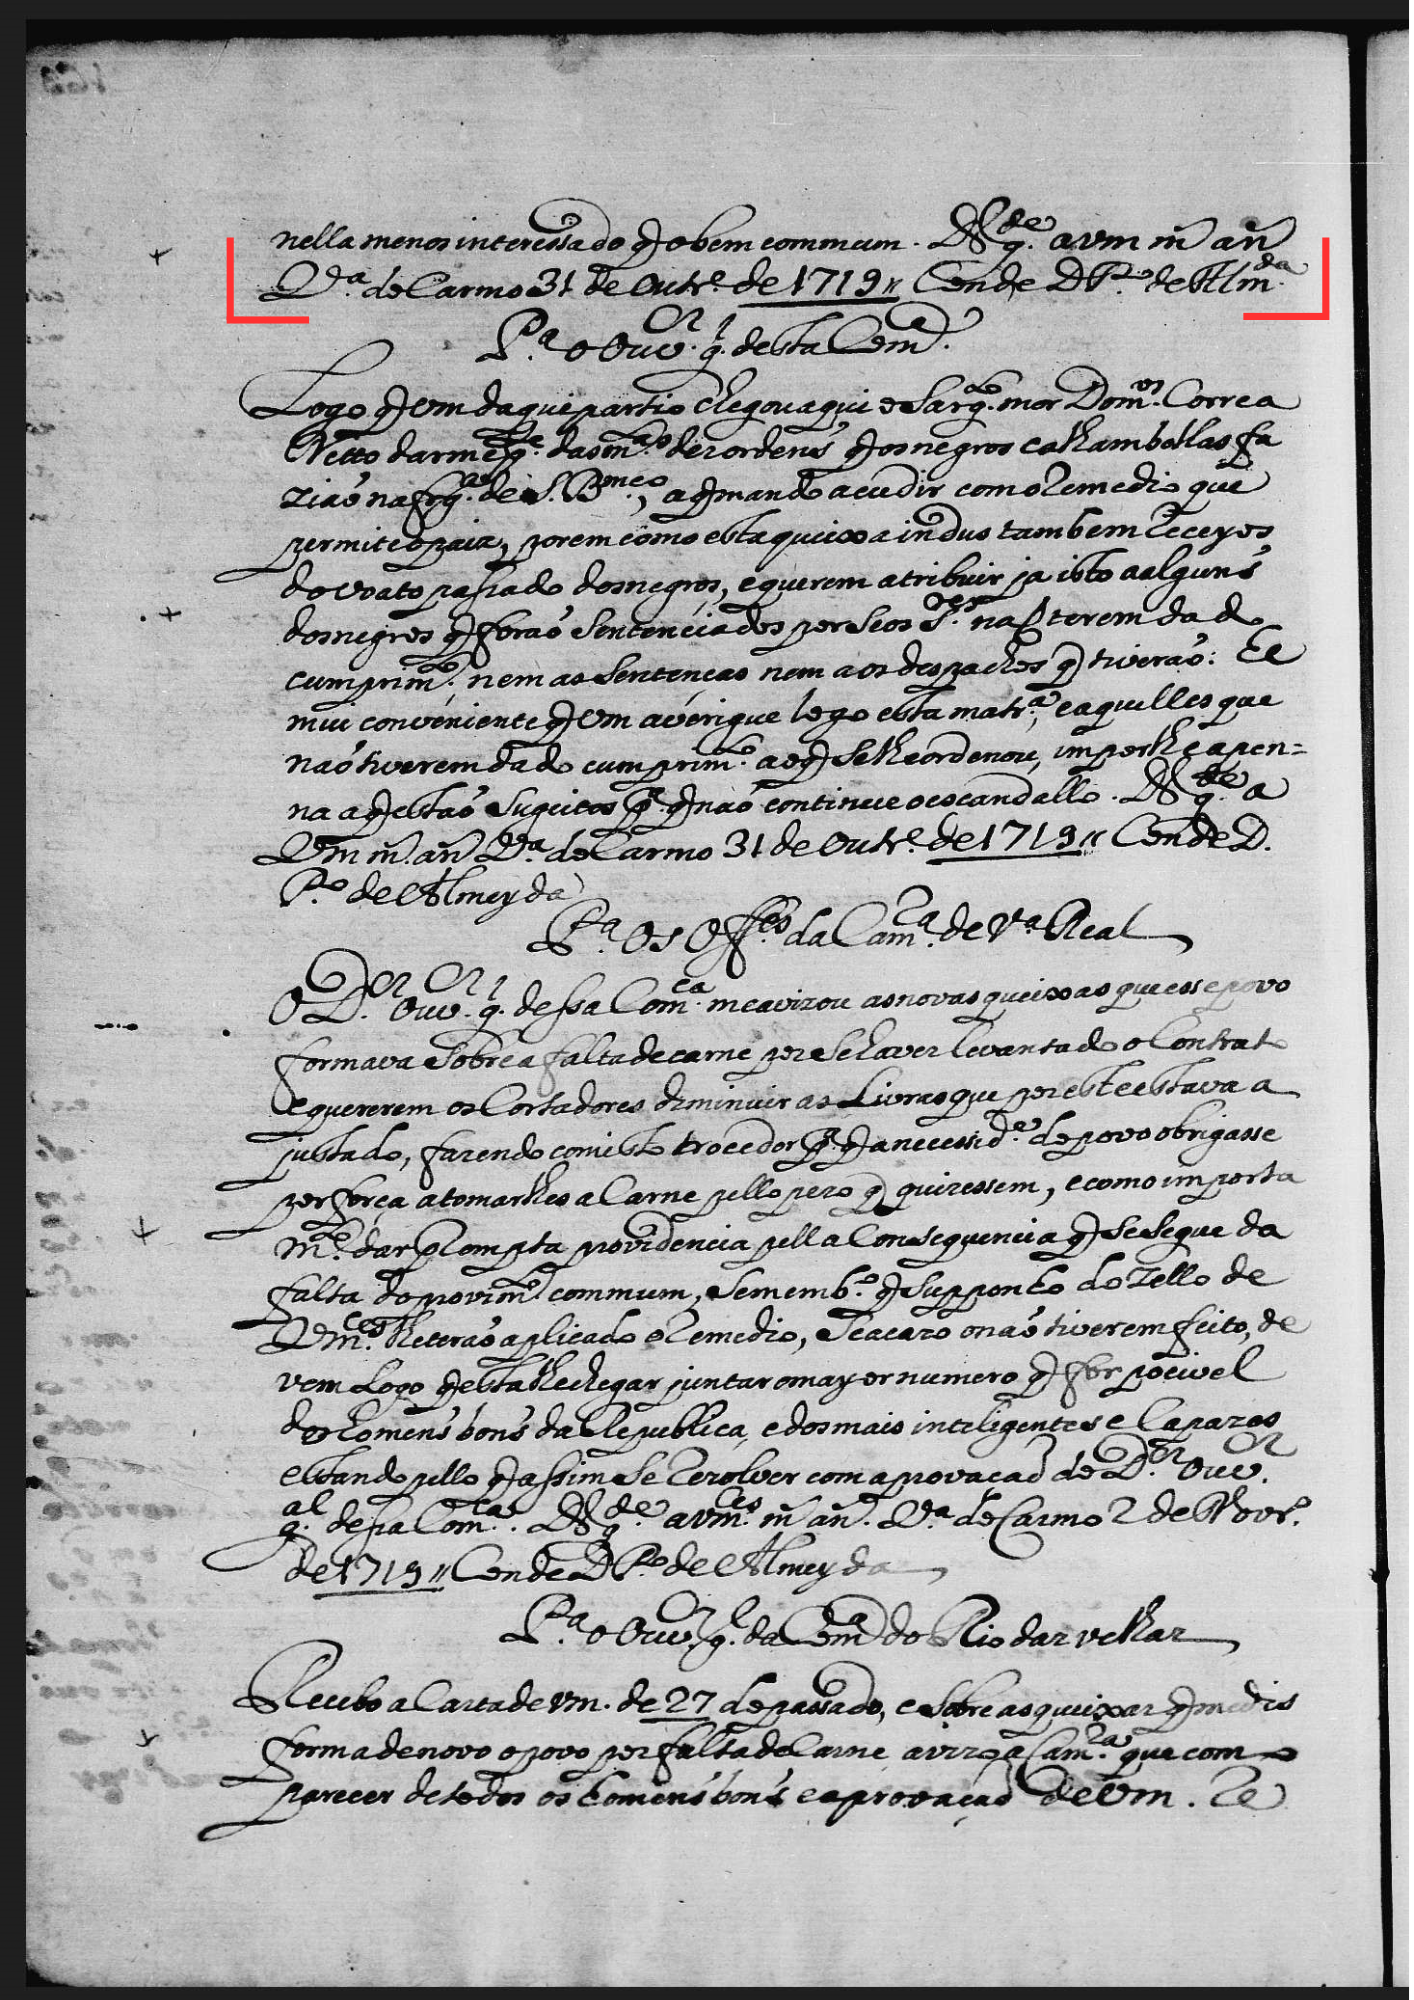 nella menos interessado q̃ o bem commum. Ds. g.de a vm m̃ añ
V.a do Carmo 31 de Outr.o de 1719 // Conde D. P.o de Alm.da
P.a o Ouv.or g.l desta Com.ca
Logo q̃ Vm daqui partio chegou aqui o Sarg.to mor Dom.os Correa
Netto darme p.te das m.tas dezordens q̃ os negros calhambollas fa
zião na frg.a de S. B.meo, a q̃ mando acudir com o remedio que
permite o paiz, porem como esta queixa induz tambem receyos
do voato passado dos negros, e querem atribuir ja isto a alguns
dos negros q̃ forão sentenciados por seos S.res não terem dado
cumprim.to nem as sentenças nem aos despachos q̃ tiverão: He
mui conveniente q̃ Vm averigue logo esta matr.a, e aquelles que
não tiverem dado cumprim.to ao q̃ se lhe ordenou, imporlhe a pen=
na a q̃ estão sugeitos p.a q̃ não continue o escandallo. Ds. g.de a
Vm m̃. añ V.a do Carmo 31 de Outr.o de 1719 // Conde D.
P.o de Almeyda
P.a Os Off.es da Cam.ra de V.a Real
O D.or Ouv.or g.l dessa Com.ca me avizou as novas queixas que esse povo
formava sobre a falta de carne por se haver levantado o Contrato
e quererem os Cortadores diminuir as Livras que por este estava a
justado, fazendo com isto p.a q̃ a necessid.e do povo obrigasse
por força a tomarlhes a Carne pello pezo q̃ quizessem, e como importa
m.to dar prompta providencia pella Consequencia q̃ se segue da
falta do provim.to commum, sem emb.o q̃ supponho do zello de
Vm.ces lhe terão aplicado o remedio, se acazo o não tiverem feito, de
vem Logo q̃ esta lhe chegar juntar o mayor numero q̃ for pocivel
dos homens bons da Republica, e dos mais inteligentes e Capazes
estando pello q̃ assim se rezolver com aprovação do D.or Ouv.or
g.al dessa Com.ca. Ds. g.de a vm.ces m̃ añ. V.a do Carmo 2 de Novr.o
de 1719 // Conde D. P.o de Almeyda
P.a o Ouv.or g.l da Com.ca do Rio das velhas
Recebo a Carta de Vm. de 27 do passado, e sobre as queixas q̃ me dis
forma de novo o povo por falta de Carne avizo a Cam.ra que com o
parecer de todos os homens bons e aprovação de Vm. re